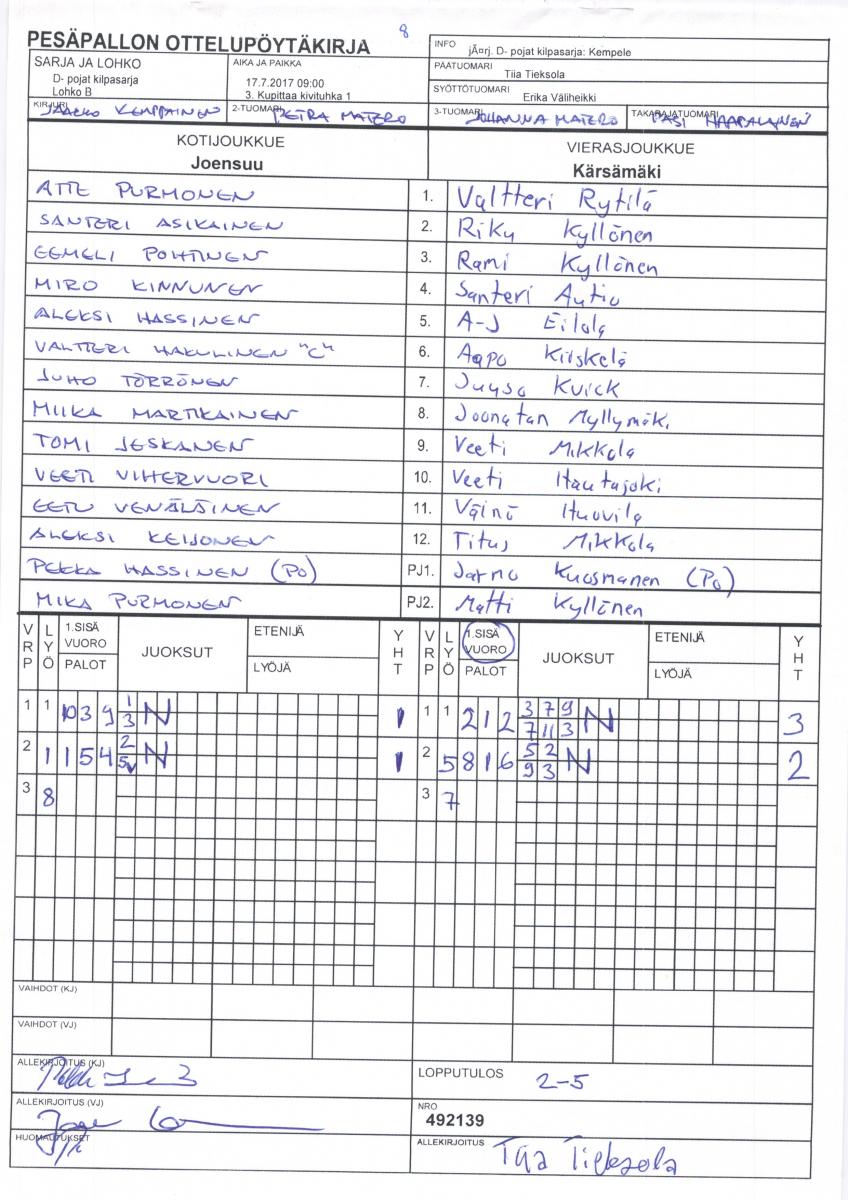 8
PESÄPALLON OTTELUPÖYTÄKIRJA
INFO jÃ¤rj. D- pojat kilpasarja: Kempele
SARJA JA LOHKO
D- pojat kilpasarja
Lohko B
AIKA JA PAIKKA
17.7.2017 09:00
3. Kupittaa kivituhka 1
PÄÄTUOMARI
Tiia Tieksola
SYÖTTÖTUOMARI
Erika Väliheikki
KIRJURI JAAKKO KEMPPAINEN
2-TUOMARI PETRA MATERO
3-TUOMARI JOHANNA MATERO
TAKARAJATUOMARI PASI HAAPALAINEN
KOTIJOUKKUE
Joensuu
VIERASJOUKKUE
Kärsämäki
ATTE PURMONEN 1. Valtteri Rytilä
SANTERI ASIKAINEN 2. Riku Kyllönen
EEMELI POHTINEN 3. Rami Kyllönen
MIRO KINNUNEN 4. Santeri Autio
ALEKSI HASSINEN 5. A-J Eilola
VALTTERI HAKULINEN "C" 6. Aapo Kiiskelä
JUHO TÖRRÖNEN 7. Juuso Kuick
MIIKA MARTIKAINEN 8. Joonatan Myllymäki
TOMI JESKANEN 9. Veeti Mikkola
VEETI VIHERVUORI 10. Veeti Hautajoki
EETU VENÄLÄINEN 11. Väinö Huovila
ALEKSI KEIJONEN 12. Titus Mikkola
PEKKA HASSINEN (PO) PJ1. Jarmo Kuosmanen (Po)
MIKA PURMONEN PJ2. Matti Kyllönen
VRP LYÖ 1.SISÄ VUORO PALOT JUOKSUT ETENIJÄ LYÖJÄ YHT VRP LYÖ 1.SISÄ VUORO PALOT JUOKSUT ETENIJÄ LYÖJÄ YHT
1 1 10 3 9 1/3 N 1 1 1 2 1 2 3/7 7/11 9/3 N 3
2 1 1 5 4 2/5 N 1 2 5 8 1 6 5/9 2/3 N 2
3 8 3 7
VAIHDOT (KJ)
VAIHDOT (VJ)
ALLEKIRJOITUS (KJ)
LOPPUTULOS 2-5
ALLEKIRJOITUS (VJ)
NRO
492139
HUOMAUTUKSET
ALLEKIRJOITUS Tiia Tieksola